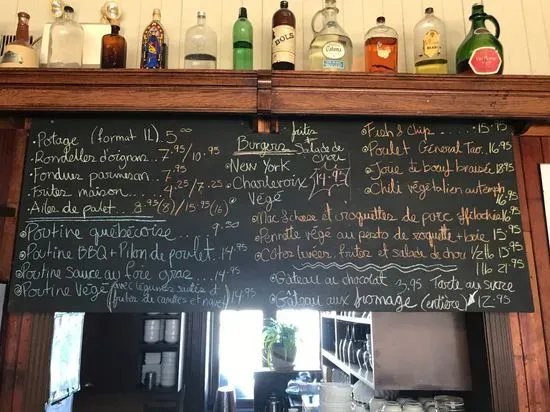 Potage (format 1L) 5.00
Rondelles d'oignons 7.95/10.95
Fondues parmesan 7.95
Frites maison 4.25/7.25
Ailes de poulet 8.95(8)/15.95(16)
Poutine québécoise 9.50
Poutine BBQ + Pilon de poulet. 14.95
Poutine sauce au foie gras 14.95
Poutine Végé (avec légumes sautés et frites de carottes et navet) 14.95
Burgers frites salade de chou
New York
Charlevoix 14.95
Végé
Mac & cheese et croquettes de porc effiloché 16.95
Pennette végé au pesto de roquette + noix 15.95
Côtes levées, frites et salade de chou 1/2 lb 15.95
1 lb 21.95
Gâteau au chocolat 3.95 Tarte au sucre
Gâteau aux fromage (entière) 12.95
Fish & Chip 15.95
Poulet Général Tao. 16.95
Joue de boeuf braisée 18.95
Chili végétalien 16.95
BOLS